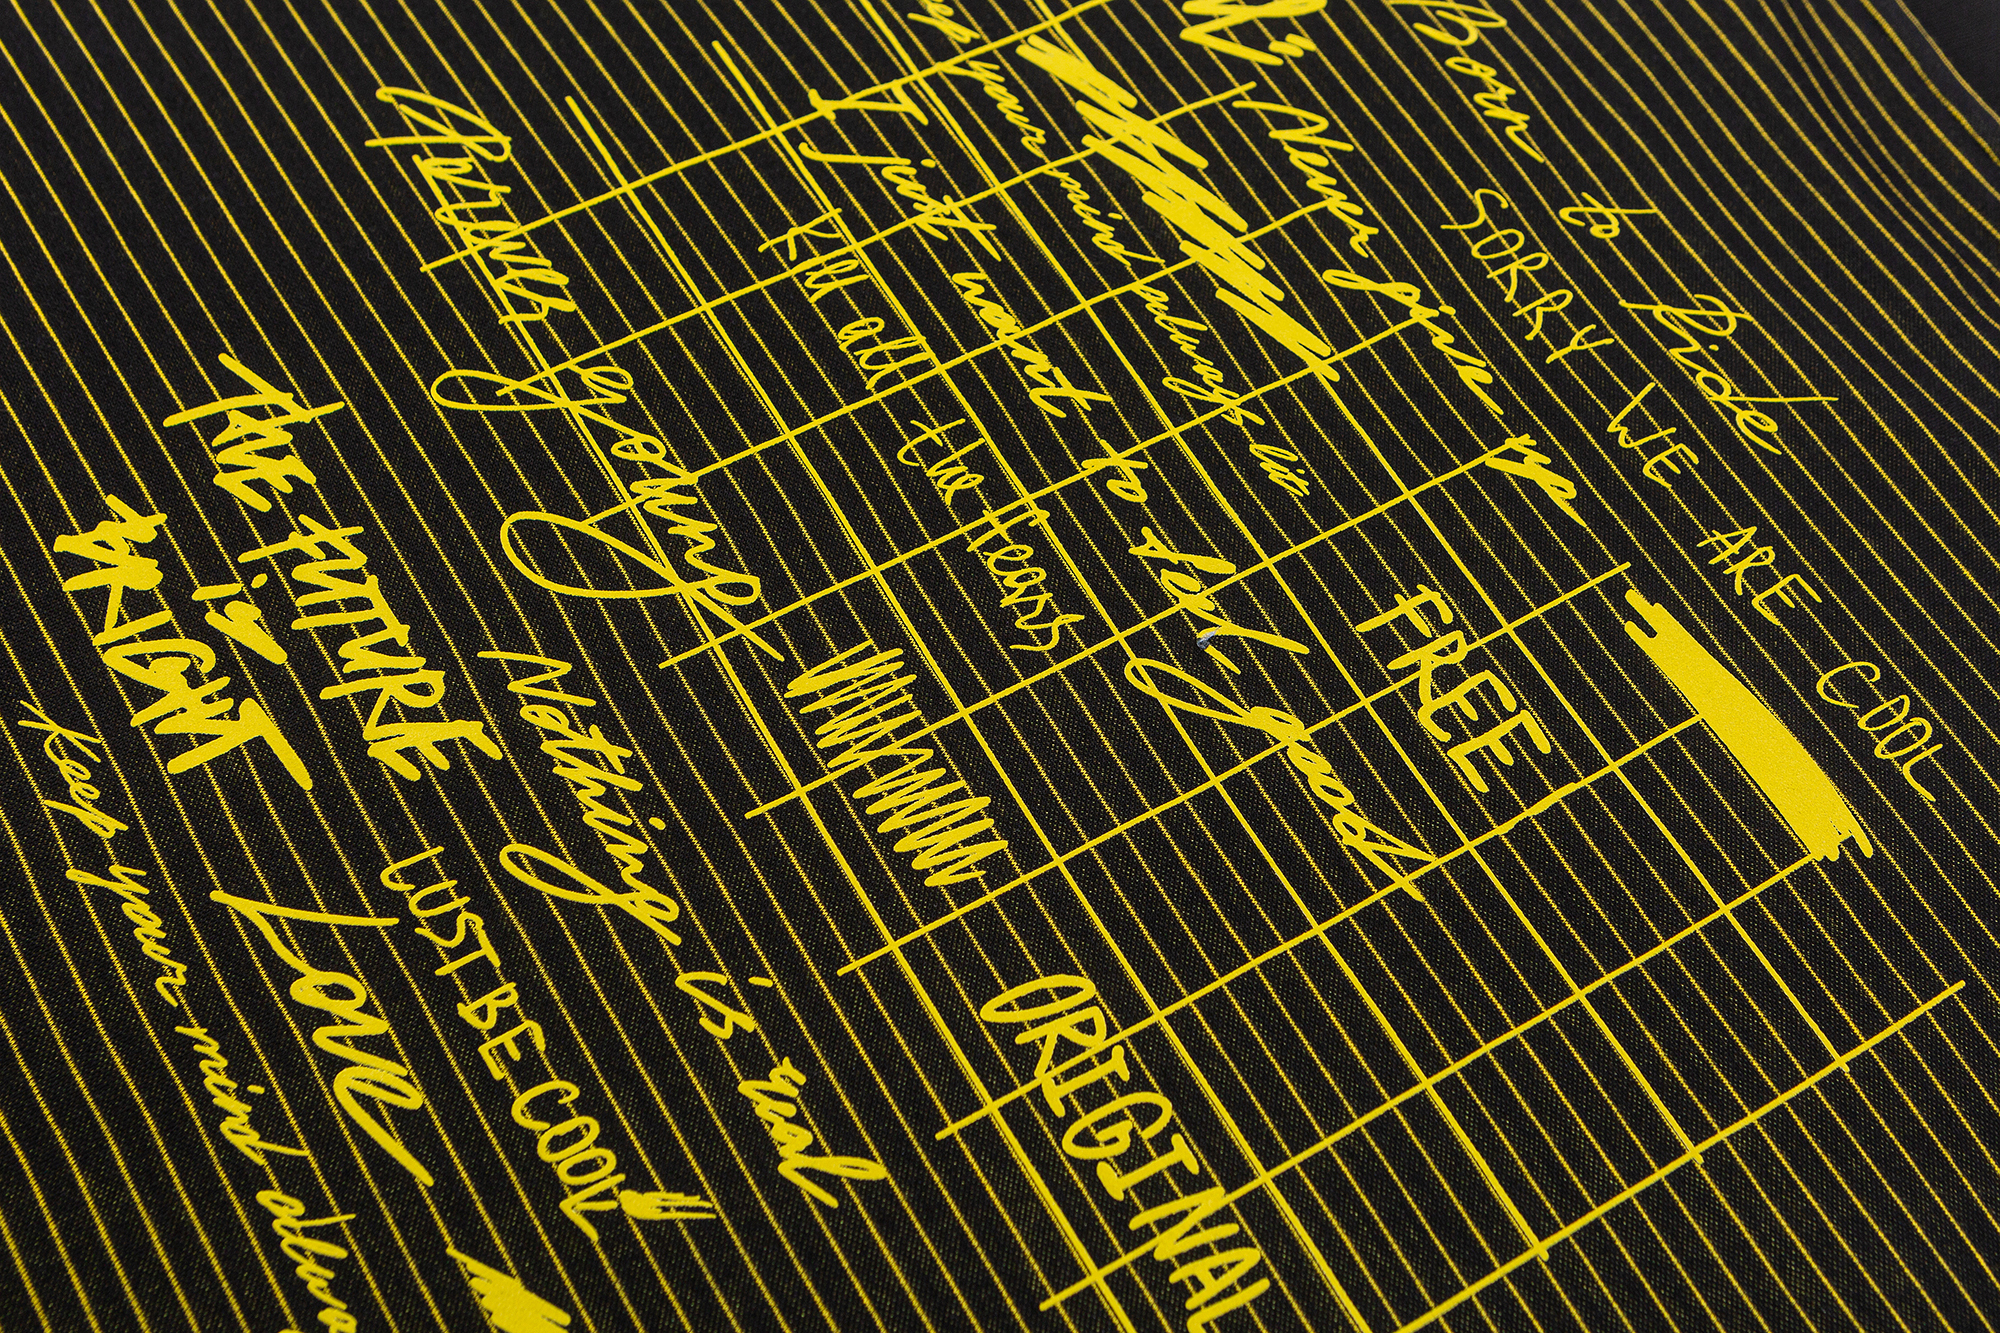 Born to Ride
SORRY WE ARE COOL
Never give up
your mind always be
FREE
I just want to feel Good
Kill all
the fears
ORIGINAL
Always young
Nothing is real
THE FUTURE
is
BRIGHT
LUST BE COOL
Love
Keep your mind always